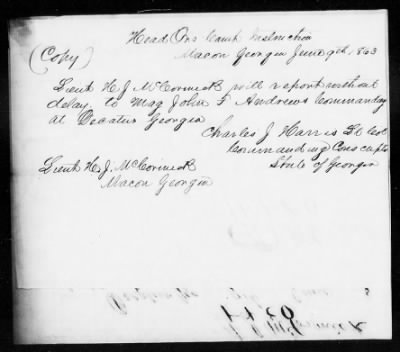 Head Qrs Camp Instruction
(Copy)
Macon Georgia June 9th 1863
Lieut H. J. McCormick will report without
delay to Maj John F Andrews Commanding
at Decatur Georgia
Charles J Harris Lt Col
Commanding Conscripts
State of Georgia
Lieut H. J. McCormick
Macon Georgia